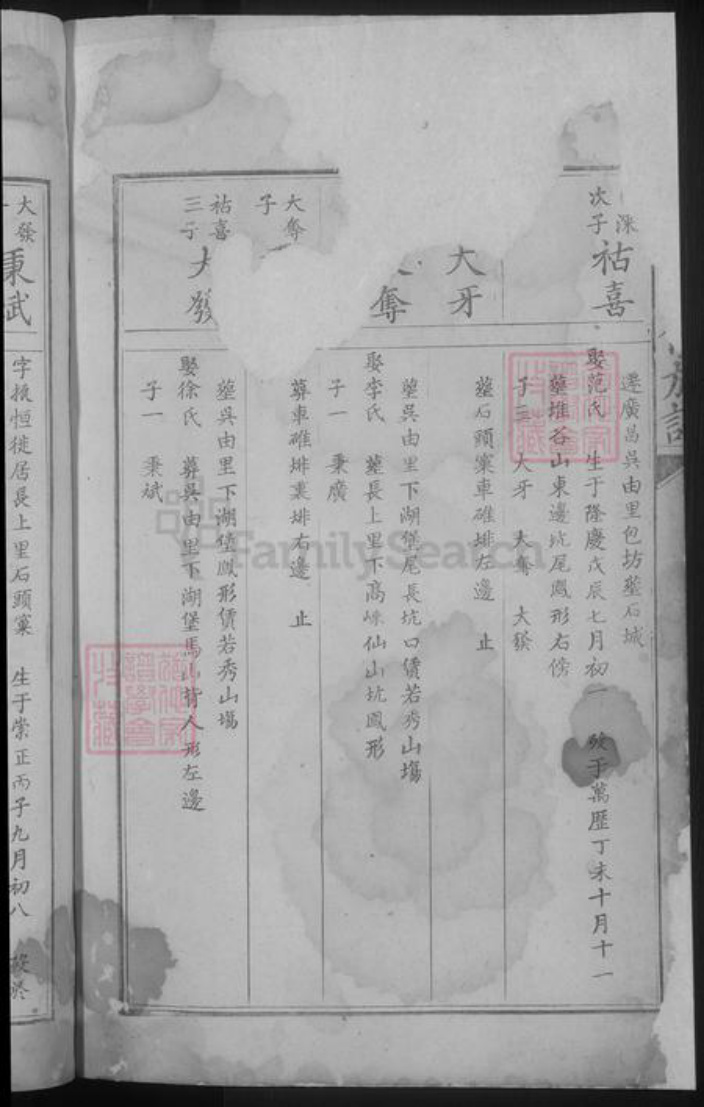 深
次子
祐喜
遷廣昌吳由里包坊塟石城
娶范氏 生于隆慶戊辰七月初一 歿于萬歷丁未十月十一
塟堆谷山東邊坑尾鳳形右傍
子三 大牙 大奪 大發
大牙
塟石頭窠車碓垹左邊 止
奪
塟吳由里下湖堡尾長坑口價若秀山塲
娶李氏 塟長上里下高崠仙山坑鳳形
子一 秉廣
大奪
子
葬車碓垹裏垹右邊 止
祐喜
三子
大發
塟吳由里下湖堡鳳形價若秀山塲
娶徐氏 葬吳由里下湖堡馬山背人形左邊
子一 秉斌
大發
秉武
字振恒徙居長上里石頭窠 生于崇正丙子九月初八 歿於
FamilySearch